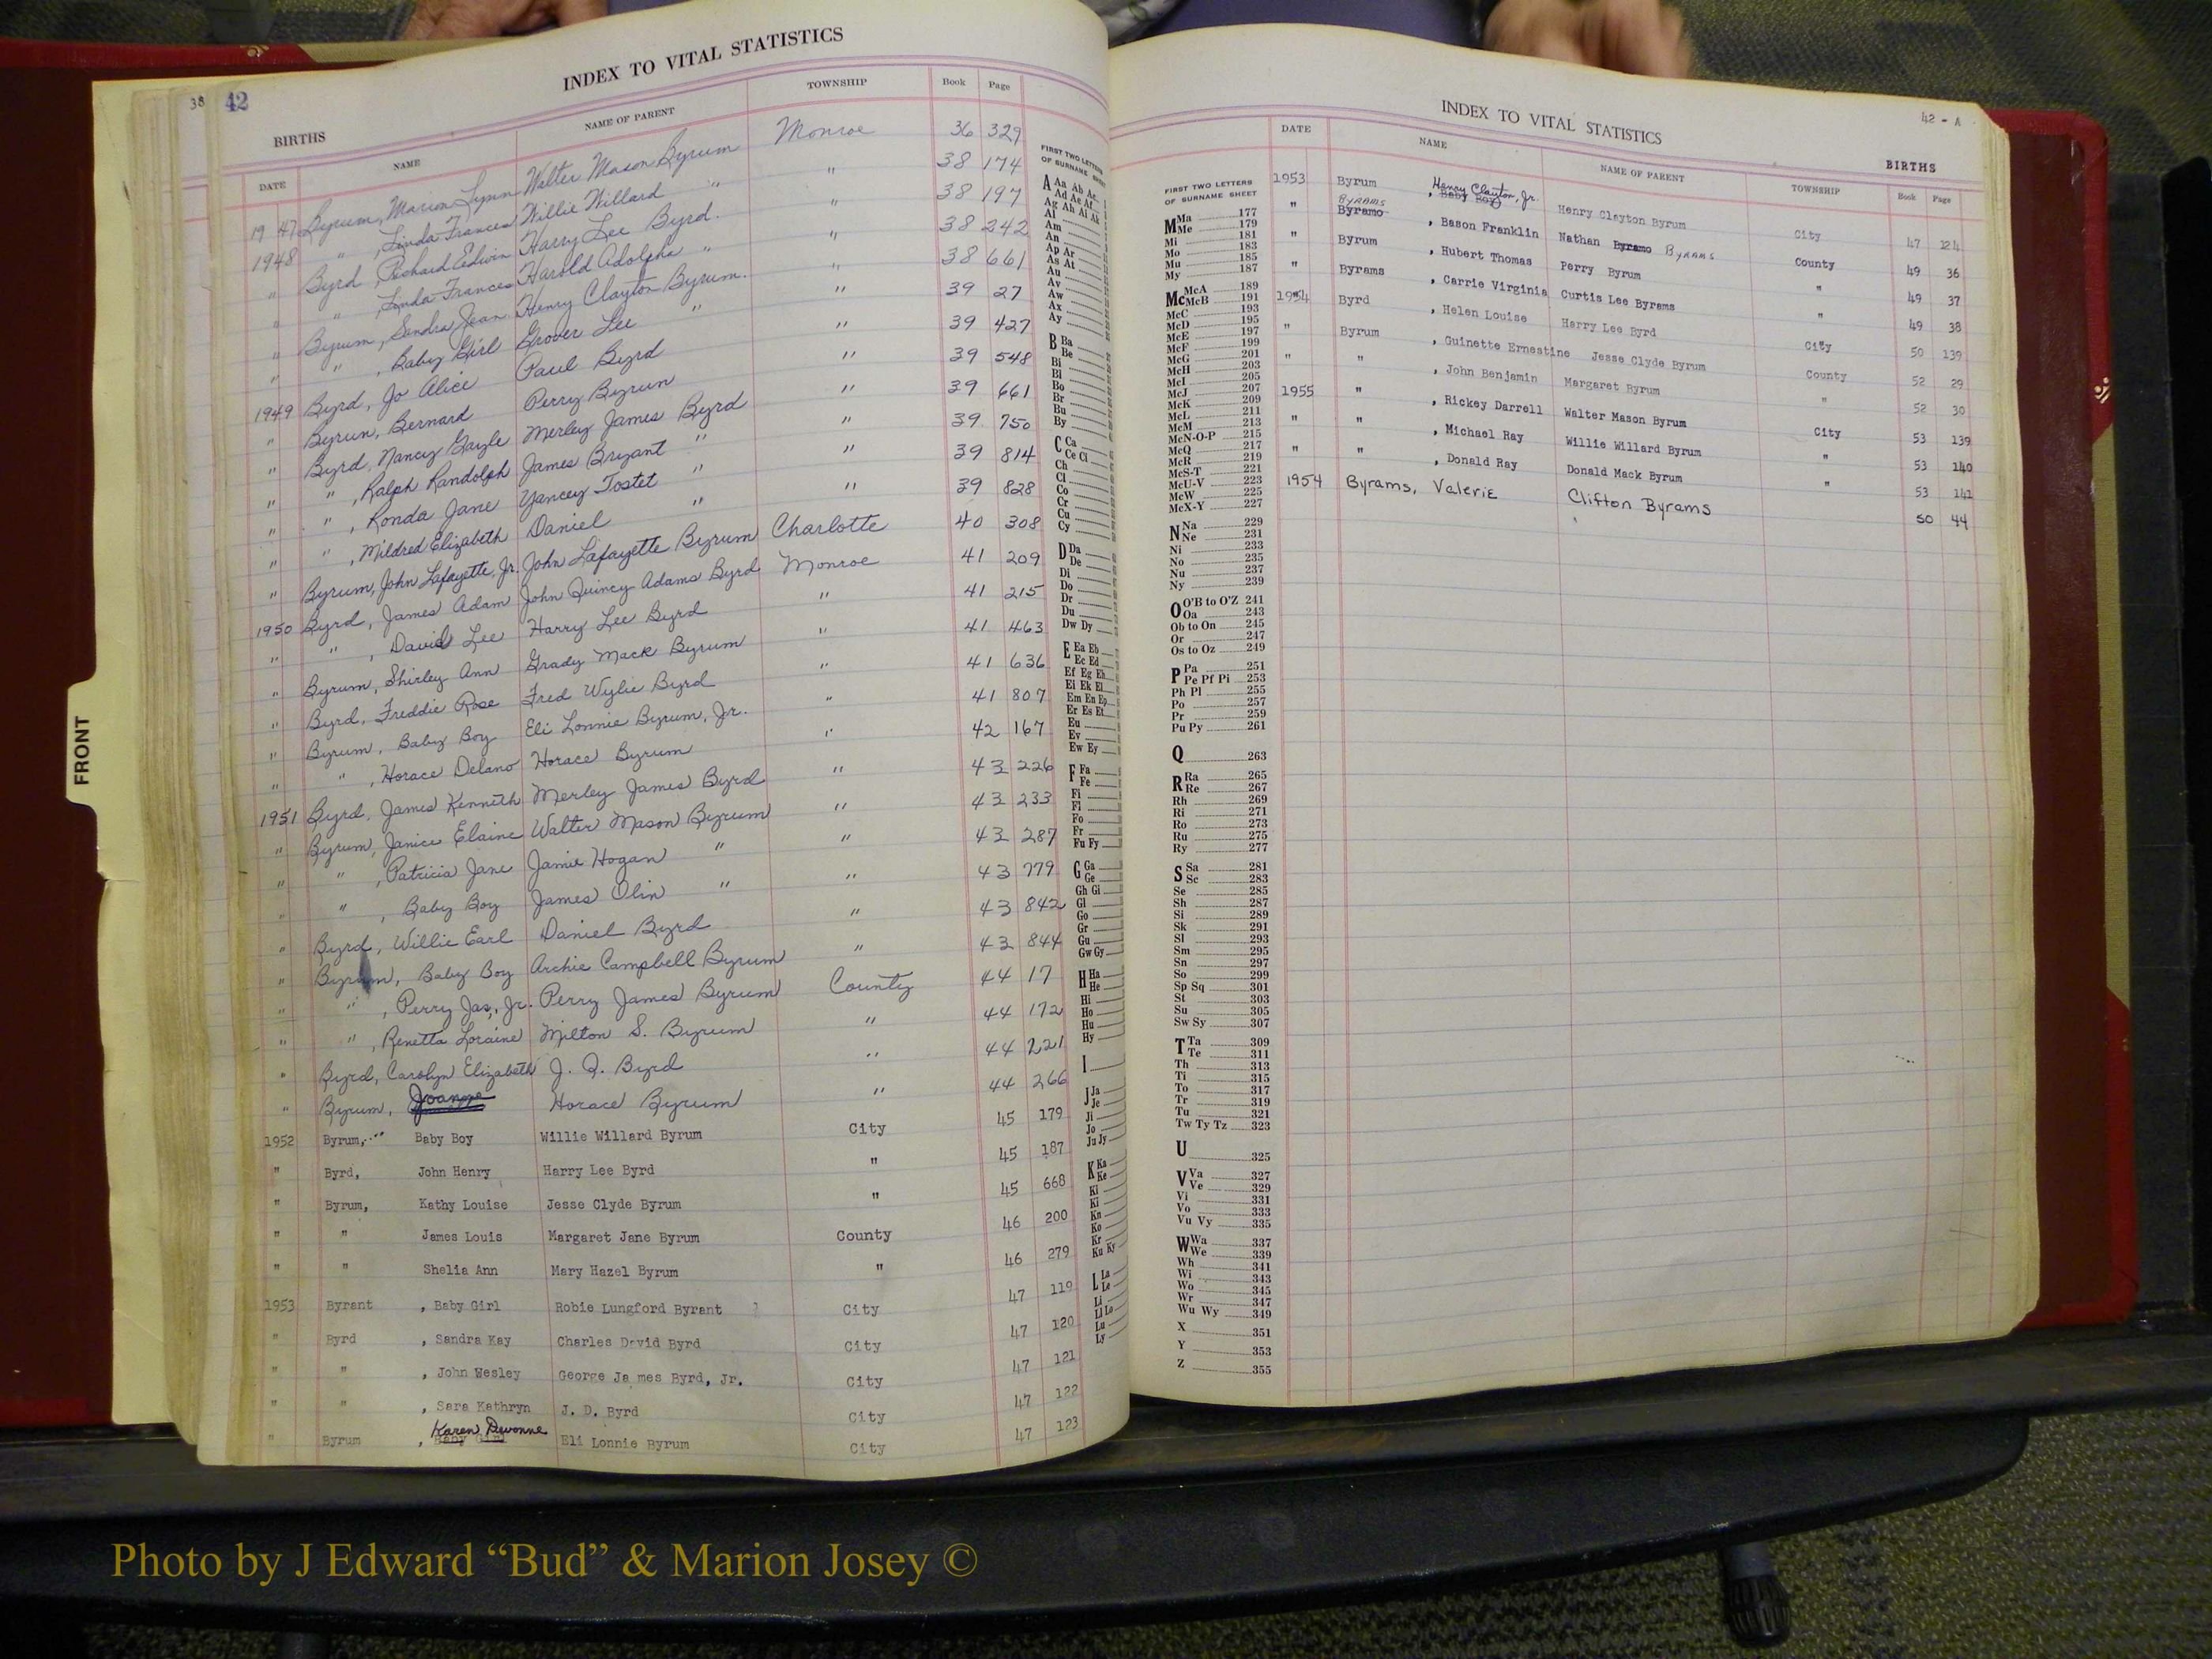 38 42
INDEX TO VITAL STATISTICS
BIRTHS
DATE NAME NAME OF PARENT TOWNSHIP Book Page
1947 Byrum, Marion Lynn Walter Mason Byrum Monroe 36 329
" " , Linda Frances Willie Willard " " 38 174
1948 Byrd, Richard Edwin Harry Lee Byrd. " 38 197
" " , Linda Frances Harold Adolphe " " 38 242
" Byrum, Sandra Jean Henry Clayton Byrum. " 38 661
" " , Baby Girl Grover Lee " " 39 27
1949 Byrd, Jo Alice Paul Byrd " 39 427
" Byrun, Bernard Perry Byrun " 39 548
" Byrd, Nancy Gayle Merley James Byrd " 39 661
" " , Ralph Randolph James Bryant " " 39 750
" " , Ronda Jane Yancey Tostet " " 39 814
" " , Mildred Elizabeth Daniel " " 39 828
" Byrum, John Lafayette, Jr. John Lafayette Byrum Charlotte 40 308
1950 Byrd, James Adam John Quincy Adams Byrd Monroe 41 209
" " , David Lee Harry Lee Byrd " 41 215
" Byrum, Shirley Ann Grady Mack Byrum " 41 463
" Byrd, Freddie Rose Fred Wylie Byrd " 41 636
" Byrum, Baby Boy Eli Lonnie Byrum, Jr. " 41 807
" " , Horace Delano Horace Byrum " 42 167
1951 Byrd, James Kenneth Merley James Byrd " 43 226
" Byrum, Janice Elaine Walter Mason Byrum " 43 233
" " , Patricia Jane Jamie Hogan " " 43 287
" " , Baby Boy James Olin " " 43 779
" Byrd, Willie Earl Daniel Byrd " 43 842
" Byrum, Baby Boy Archie Campbell Byrum " 43 844
" " , Perry Jas., Jr. Perry James Byrum County 44 17
" " , Renetta Loraine Milton S. Byrum " 44 172
" Byrd, Carolyn Elizabeth J. Q. Byrd " 44 221
" Byrum, Joanne Horace Byrum " 44 266
1952 Byrum, Baby Boy Willie Willard Byrum City 45 179
" Byrd, John Henry Harry Lee Byrd " 45 187
" Byrum, Kathy Louise Jesse Clyde Byrum " 45 668
" " James Louis Margaret Jane Byrum County 46 200
" " Shelia Ann Mary Hazel Byrum " 46 279
1953 Byrant , Baby Girl Robie Lungford Byrant City 47 119
" Byrd , Sandra Kay Charles David Byrd City 47 120
" " , John Wesley George Ja mes Byrd, Jr. City 47 121
" " , Sara Kathryn J. D. Byrd City 47 122
Karen Devonne
" Byrum , Baby Girl Eli Lonnie Byrum City 47 123
FRONT
FIRST TWO LETTERS
OF SURNAME SHEET
A Aa Ab Ac
Ad Ae Af
Ag Ah Ai Ak
Al
Am
An
Ap Ar
As At
Au
Av
Aw
Ax
Ay
B Ba
Be
Bi
Bl
Bo
Br
Bu
By
C Ca
Ce Ci
Ch
Cl
Co
Cr
Cu
Cy
D Da
De
Di
Do
Dr
Du
Dw Dy
E Ea Eb
Ec Ed
Ef Eg Eh
Ei Ek El
Em En Ep
Er Es Et
Eu
Ev
Ew Ey
F Fa
Fe
Fi
Fl
Fo
Fr
Fu Fy
G Ga
Ge
Gh Gi
Gl
Go
Gr
Gu
Gw Gy
H Ha
He
Hi
Ho
Hu
Hy
I
J Ja
Je
Ji
Jo
Ju Jy
K Ka
Ke
Ki
Kl
Kn
Ko
Kr
Ku Ky
L La
Le
Li
Ll Lo
Lu
Ly
INDEX TO VITAL STATISTICS
42 - A
BIRTHS
DATE NAME NAME OF PARENT TOWNSHIP Book Page
Henry Clayton, Jr.
1953 Byrum , Baby Boy Henry Clayton Byrum City 47 124
BYRAMS
" Byramo , Bason Franklin Nathan Byramo Byrams County 49 36
" Byrum , Hubert Thomas Perry Byrum " 49 37
" Byrams , Carrie Virginia Curtis Lee Byrams " 49 38
1954 Byrd , Helen Louise Harry Lee Byrd City 50 139
" Byrum , Guinette Ernestine Jesse Clyde Byrum County 52 29
" " , John Benjamin Margaret Byrum " 52 30
1955 " , Rickey Darrell Walter Mason Byrum City 53 139
" " , Michael Ray Willie Willard Byrum " 53 140
" " , Donald Ray Donald Mack Byrum " 53 141
1954 Byrams, Valerie Clifton Byrams 50 44
FIRST TWO LETTERS
OF SURNAME SHEET
M Ma 177
Me 179
Mi 181
Mo 183
Mu 185
My 187
Mc McA 189
McB 191
McC 193
McD 195
McE 197
McF 199
McG 201
McH 203
McI 205
McJ 207
McK 209
McL 211
McM 213
McN-O-P 215
McQ 217
McR 219
McS-T 221
McU-V 223
McW 225
McX-Y 227
N Na 229
Ne 231
Ni 233
No 235
Nu 237
Ny 239
O O'B to O'Z 241
Oa 243
Ob to On 245
Or 247
Os to Oz 249
P Pa 251
Pe Pf Pi 253
Ph Pl 255
Po 257
Pr 259
Pu Py 261
Q 263
R Ra 265
Re 267
Rh 269
Ri 271
Ro 273
Ru 275
Ry 277
S Sa 281
Sc 283
Se 285
Sh 287
Si 289
Sk 291
Sl 293
Sm 295
Sn 297
So 299
Sp Sq 301
St 303
Su 305
Sw Sy 307
T Ta 309
Te 311
Th 313
Ti 315
To 317
Tr 319
Tu 321
Tw Ty Tz 323
U 325
V Va 327
Ve 329
Vi 331
Vo 333
Vu Vy 335
W Wa 337
We 339
Wh 341
Wi 343
Wo 345
Wr 347
Wu Wy 349
X 351
Y 353
Z 355
Photo by J Edward “Bud” & Marion Josey ©